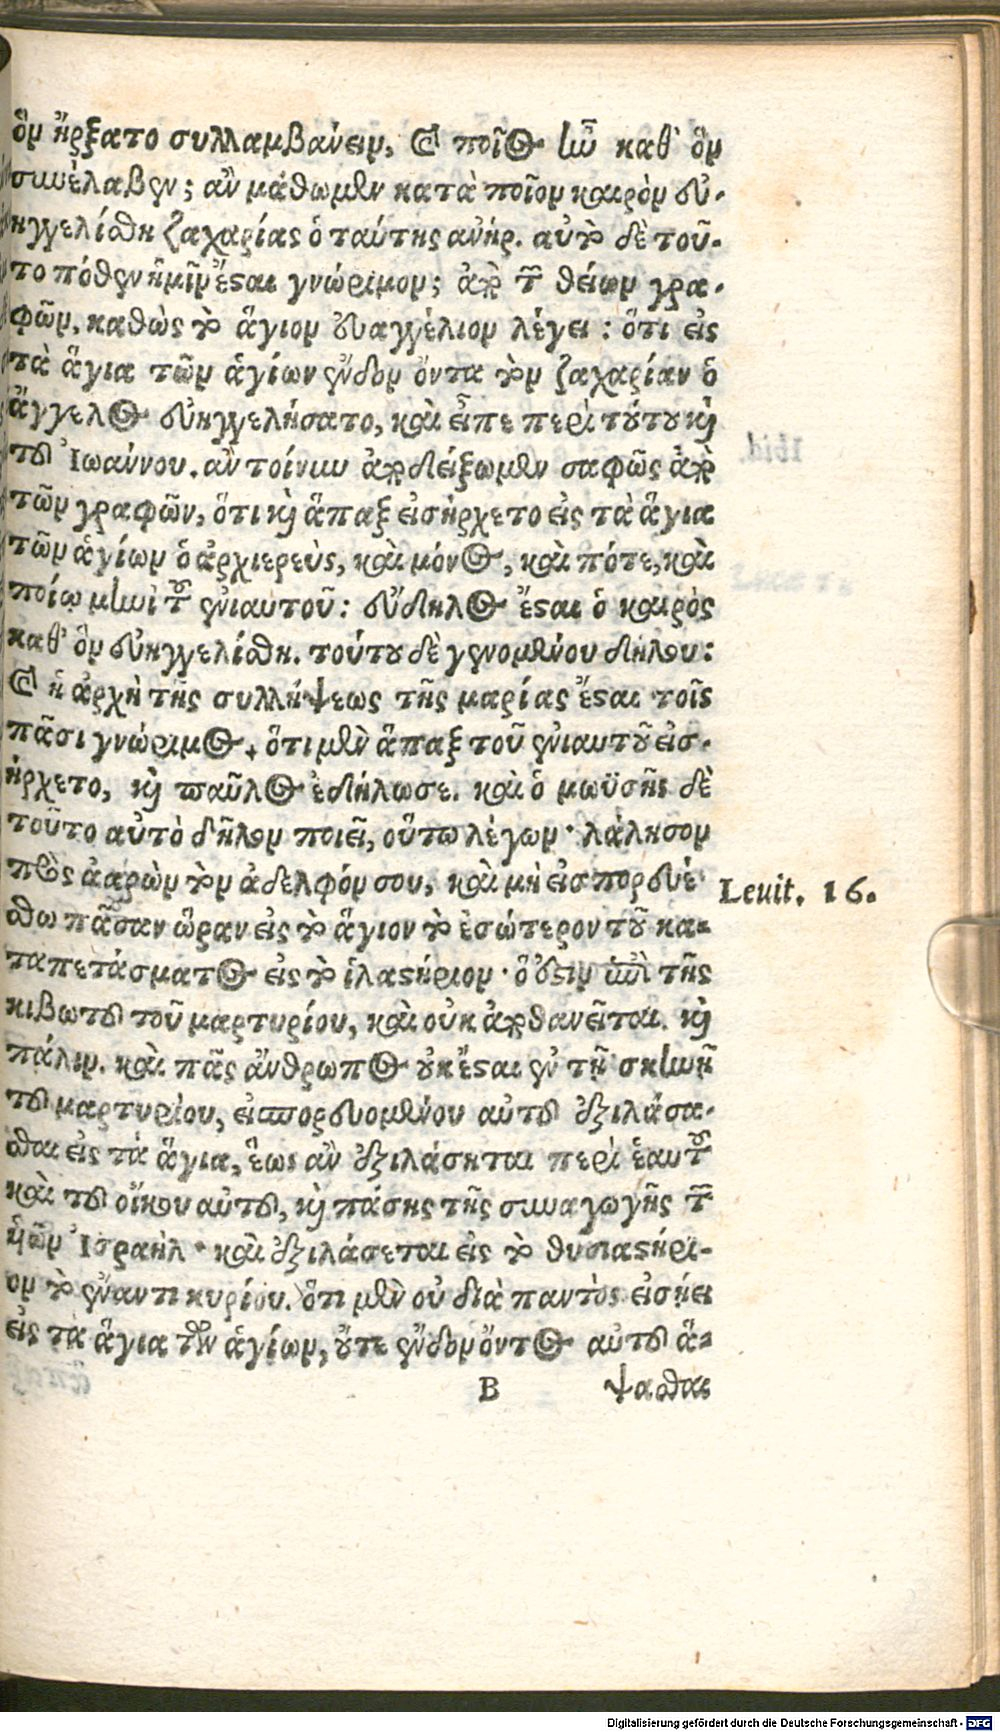 ὃν ἤρξατο συλλαμβάνειν, καὶ ποῖος ἦν καθ' ὃν
συνέλαβεν; ἂν μάθωμεν κατὰ ποῖον καιρὸν εὐ-
ηγγελίσθη ζαχαρίας ὁ ταύτης ἀνήρ. αὐτὸ δὲ τοῦ-
το πόθεν ἡμῖν ἔσται γνώριμον; ἀπὸ τῶν θείων γρα-
φῶν, καθὼς τὸ ἅγιον εὐαγγέλιον λέγει: ὅτι εἰς
τὰ ἅγια τῶν ἁγίων ἔνδον ὄντα τὸν ζαχαρίαν ὁ
ἄγγελος εὐηγγελήσατο, καὶ εἶπε περὶ τούτου καὶ
τοῦ Ἰωάννου. ἂν τοίνυν ἀποδείξωμεν σαφῶς ἀπὸ
τῶν γραφῶν, ὅτι καὶ ἅπαξ εἰσήρχετο εἰς τὰ ἅγια
τῶν ἁγίων ὁ ἀρχιερεὺς, καὶ μόνος, καὶ πότε, καὶ
ποίῳ μηνὶ τοῦ ἐνιαυτοῦ: εὔδηλος ἔσται ὁ καιρὸς
καθ' ὃν εὐηγγελίσθη. τούτου δὲ γενομένου δήλου:
καὶ ἡ ἀρχὴ τῆς συλλήψεως τῆς μαρίας ἔσται τοῖς
πᾶσι γνώριμος. ὅτι μὲν ἅπαξ τοῦ ἐνιαυτοῦ εἰσ-
ήρχετο, καὶ παῦλος ἐδήλωσε. καὶ ὁ μωϋσῆς δὲ
τοῦτο αὐτὸ δῆλον ποιεῖ, οὕτω λέγων· λάλησον
πρὸς ἀαρὼν τὸν ἀδελφόν σου, καὶ μὴ εἰσπορευέ-
Leuit. 16.
σθω πᾶσαν ὥραν εἰς τὸ ἅγιον τὸ ἐσώτερον τοῦ κα-
ταπετάσματος εἰς τὸ ἱλαστήριον· ὅ ἐστιν ἐπὶ τῆς
κιβωτοῦ τοῦ μαρτυρίου, καὶ οὐκ ἀποθανεῖται. καὶ
πάλιν. καὶ πᾶς ἄνθρωπος οὐκ ἔσται ἐν τῇ σκηνῇ
τοῦ μαρτυρίου, εἰσπορευομένου αὐτοῦ ἐξιλάσα-
σθαι εἰς τὰ ἅγια, ἕως ἂν ἐξιλάσηται περὶ ἑαυτοῦ
καὶ τοῦ οἴκου αὐτοῦ, καὶ πάσης τῆς συναγωγῆς τῶν
υἱῶν Ἰσραὴλ· καὶ ἐξιλάσεται εἰς τὸ θυσιαστήρι-
ον τὸ ἔναντι κυρίου. ὅτι μὲν οὐ διὰ παντὸς εἰσῄει
εἰς τὰ ἅγια τῶν ἁγίων, οὔτε ἔνδον ὄντος αὐτοῦ ἅ-
B ψασθαι
Digitalisierung gefördert durch die Deutsche Forschungsgemeinschaft - DFG